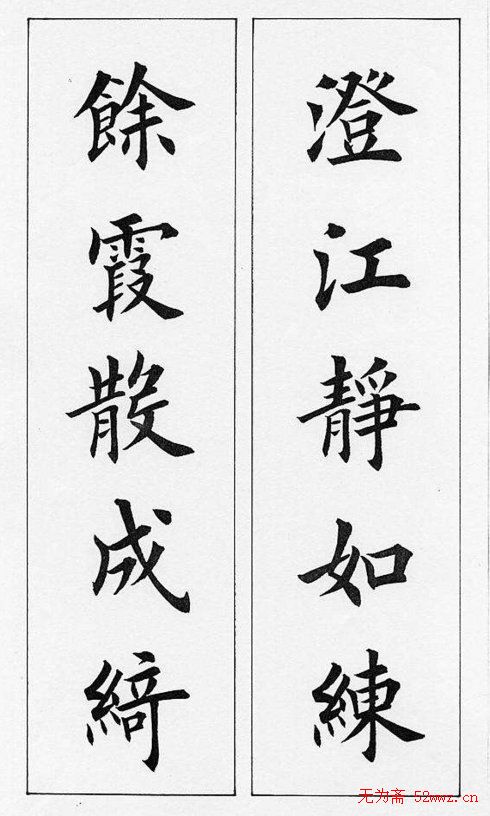 澄江靜如練
餘霞散成綺
无为斋 52wwz.cn